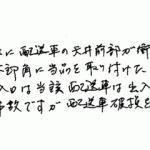 に配送車の天井前部が衝
部角に当品を取り付けた
入口は当該配送車は出入
款ですが配送車破損を